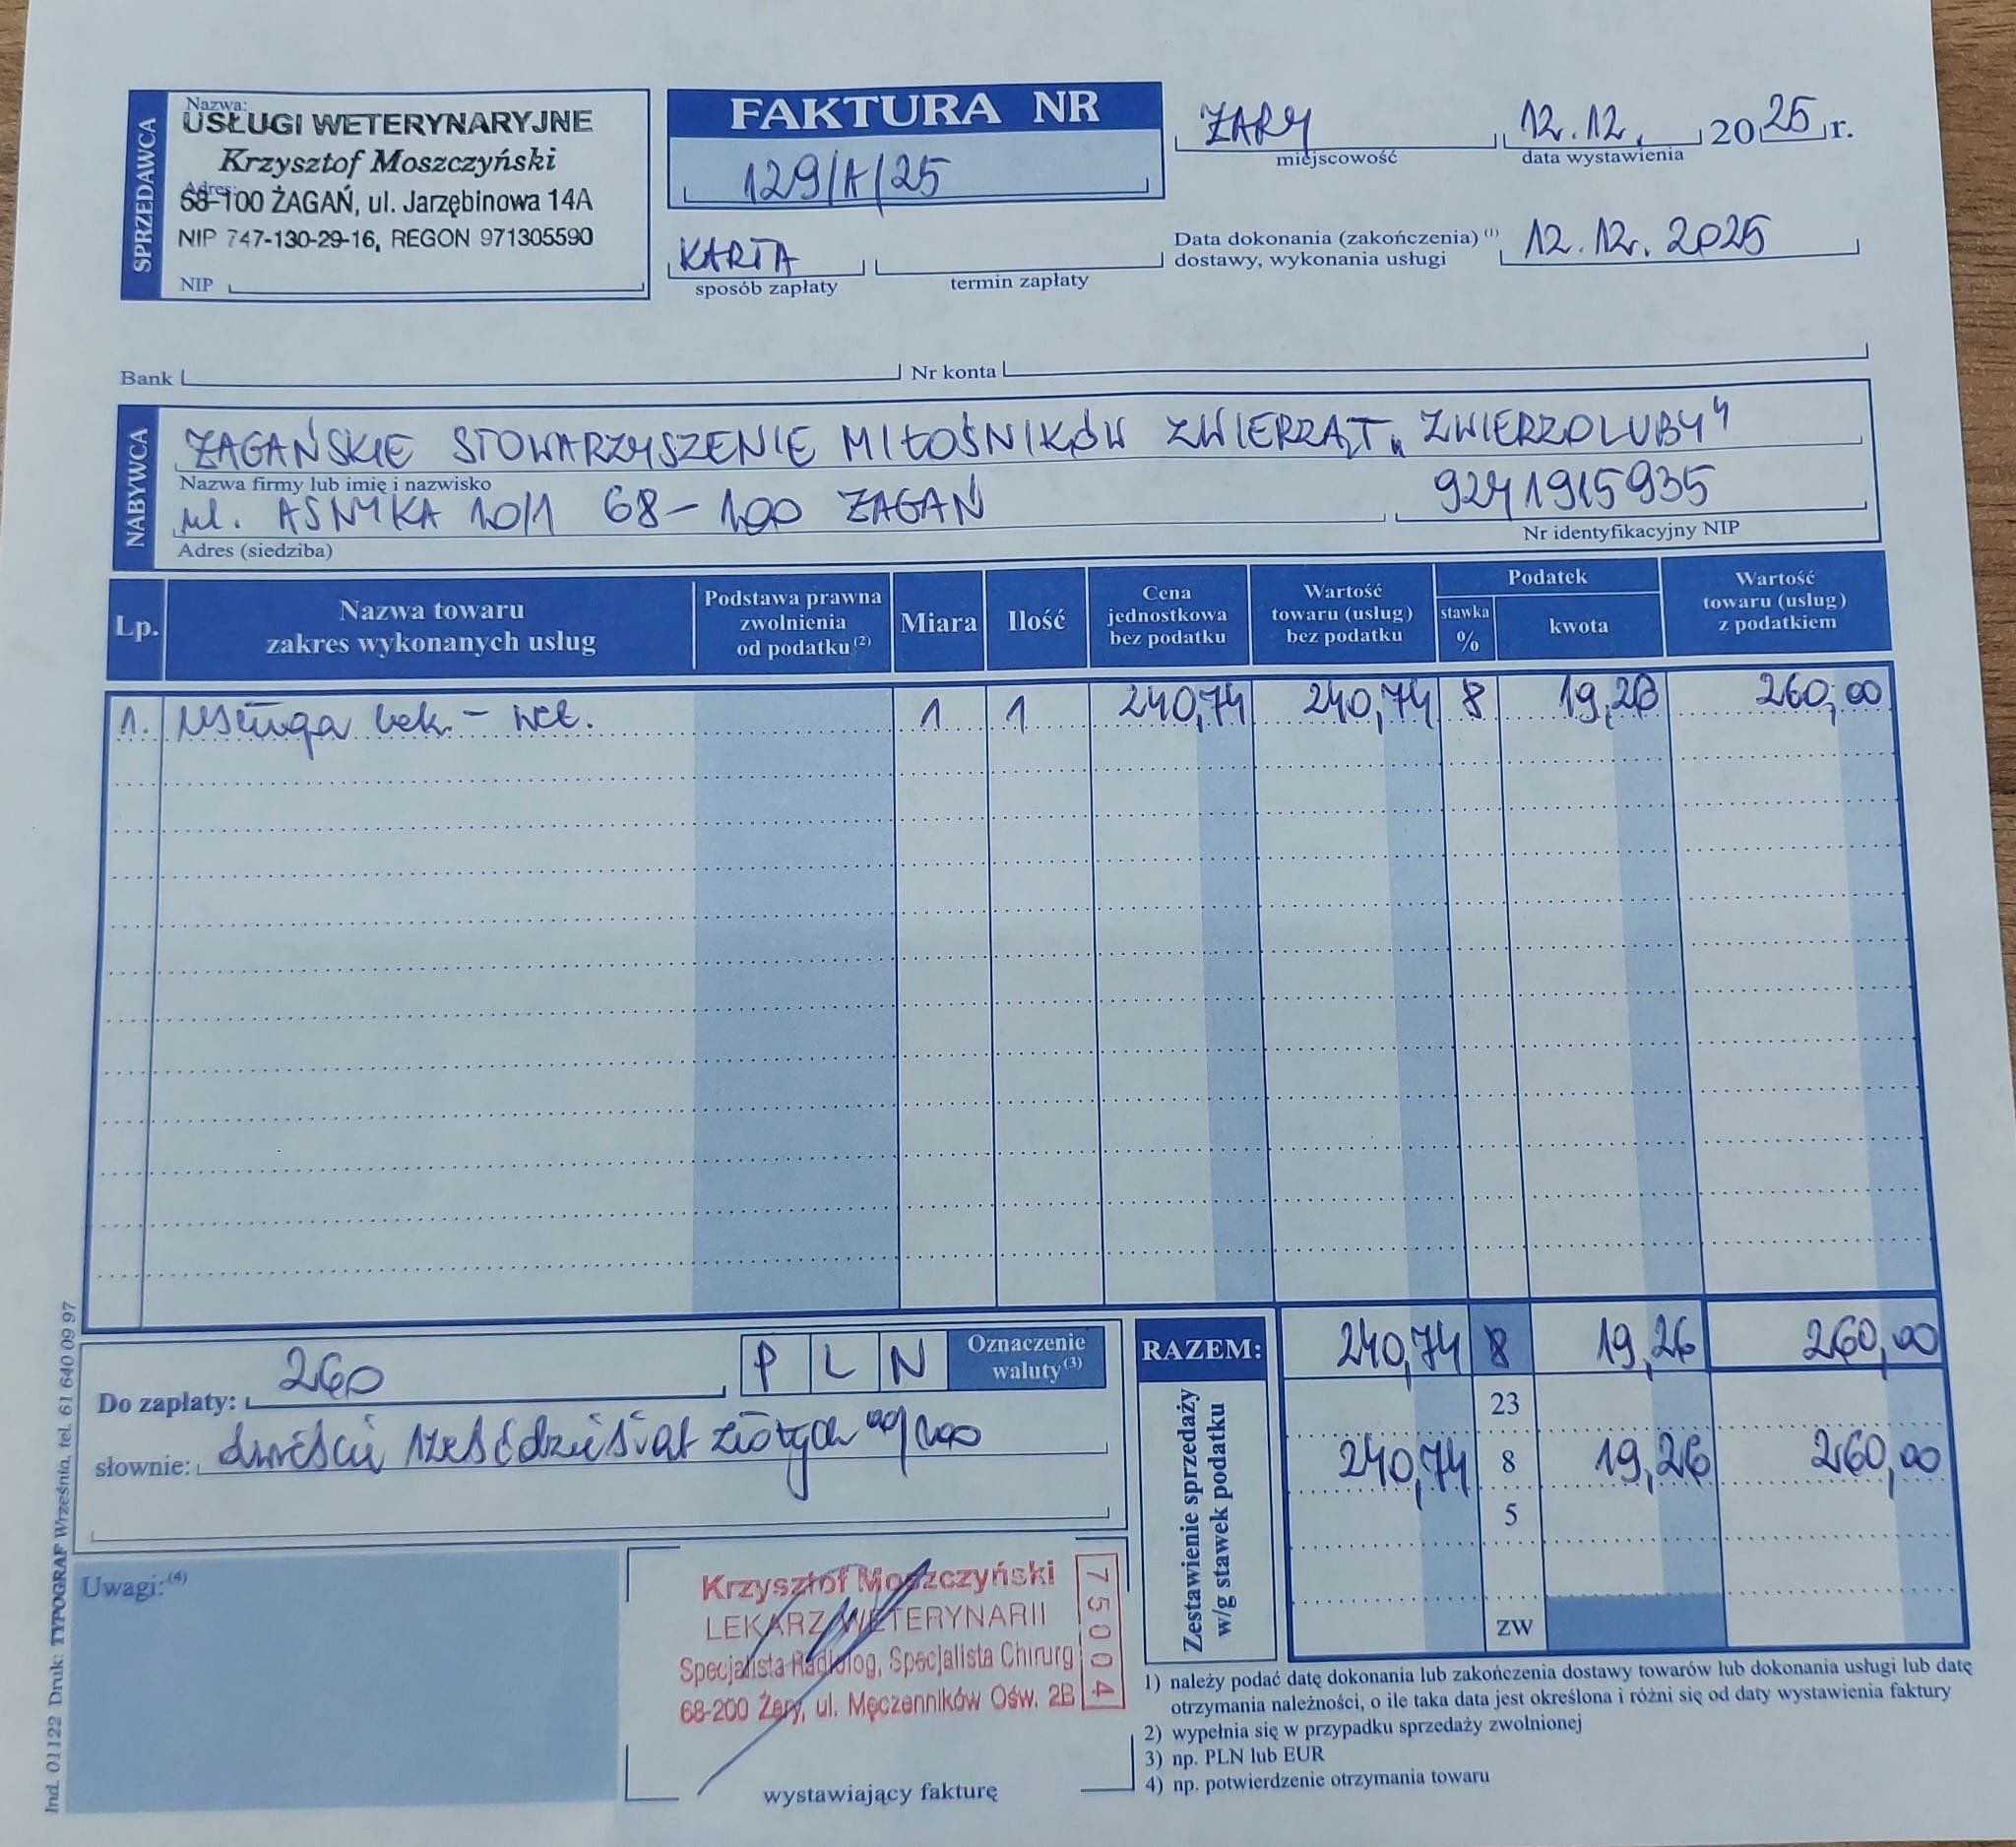 SPRZEDAWCA
Nazwa:
USŁUGI WETERYNARYJNE
Krzysztof Moszczyński
Adres:
68-100 ŻAGAŃ, ul. Jarzębinowa 14A
NIP 747-130-29-16, REGON 971305590
NIP
FAKTURA NR
129/A/25
KARTA
sposób zapłaty
termin zapłaty
ŻARY 12.12. 2025 r.
miejscowość data wystawienia
Data dokonania (zakończenia) (1) 12.12.2025
dostawy, wykonania usługi
Bank Nr konta
NABYWCA
ŻAGAŃSKIE STOWARZYSZENIE MIŁOŚNIKÓW ZWIERZĄT „ZWIERZOLUBY"
Nazwa firmy lub imię i nazwisko
ul. ASNYKA 10/1 68-100 ŻAGAŃ 9241915935
Adres (siedziba) Nr identyfikacyjny NIP
Lp. Nazwa towaru zakres wykonanych usług Podstawa prawna zwolnienia od podatku (2) Miara Ilość Cena jednostkowa bez podatku Wartość towaru (usług) bez podatku Podatek stawka % kwota Wartość towaru (usług) z podatkiem
1. Usługa lek. - wet. 1 1 240,74 240,74 8 19,26 260,00
RAZEM: 240,74 8 19,26 260,00
Do zapłaty: 260 PLN Oznaczenie waluty (3)
słownie: dwieście sześćdziesiąt złotych 00/100
Zestawienie sprzedaży w/g stawek podatku
23
240,74 8 19,26 260,00
5
ZW
Uwagi: (4)
Krzysztof Moszczyński
LEKARZ WETERYNARII
Specjalista Radiolog, Specjalista Chirurg
68-200 Żary, ul. Męczenników Ośw. 2B
75004
wystawiający fakturę
1) należy podać datę dokonania lub zakończenia dostawy towarów lub dokonania usługi lub datę
otrzymania należności, o ile taka data jest określona i różni się od daty wystawienia faktury
2) wypełnia się w przypadku sprzedaży zwolnionej
3) np. PLN lub EUR
4) np. potwierdzenie otrzymania towaru
Ind. 01122 Druk: TYPOGRAF Września, tel. 61 640 09 97